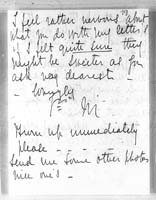 I feel rather nervous about
what you do with my letters
if I felt quite sure they
might be sweeter as you
ask my dearest!
Lovingly
M
Burn up immediately
please - - - -
Send me some other photos
nice ones -